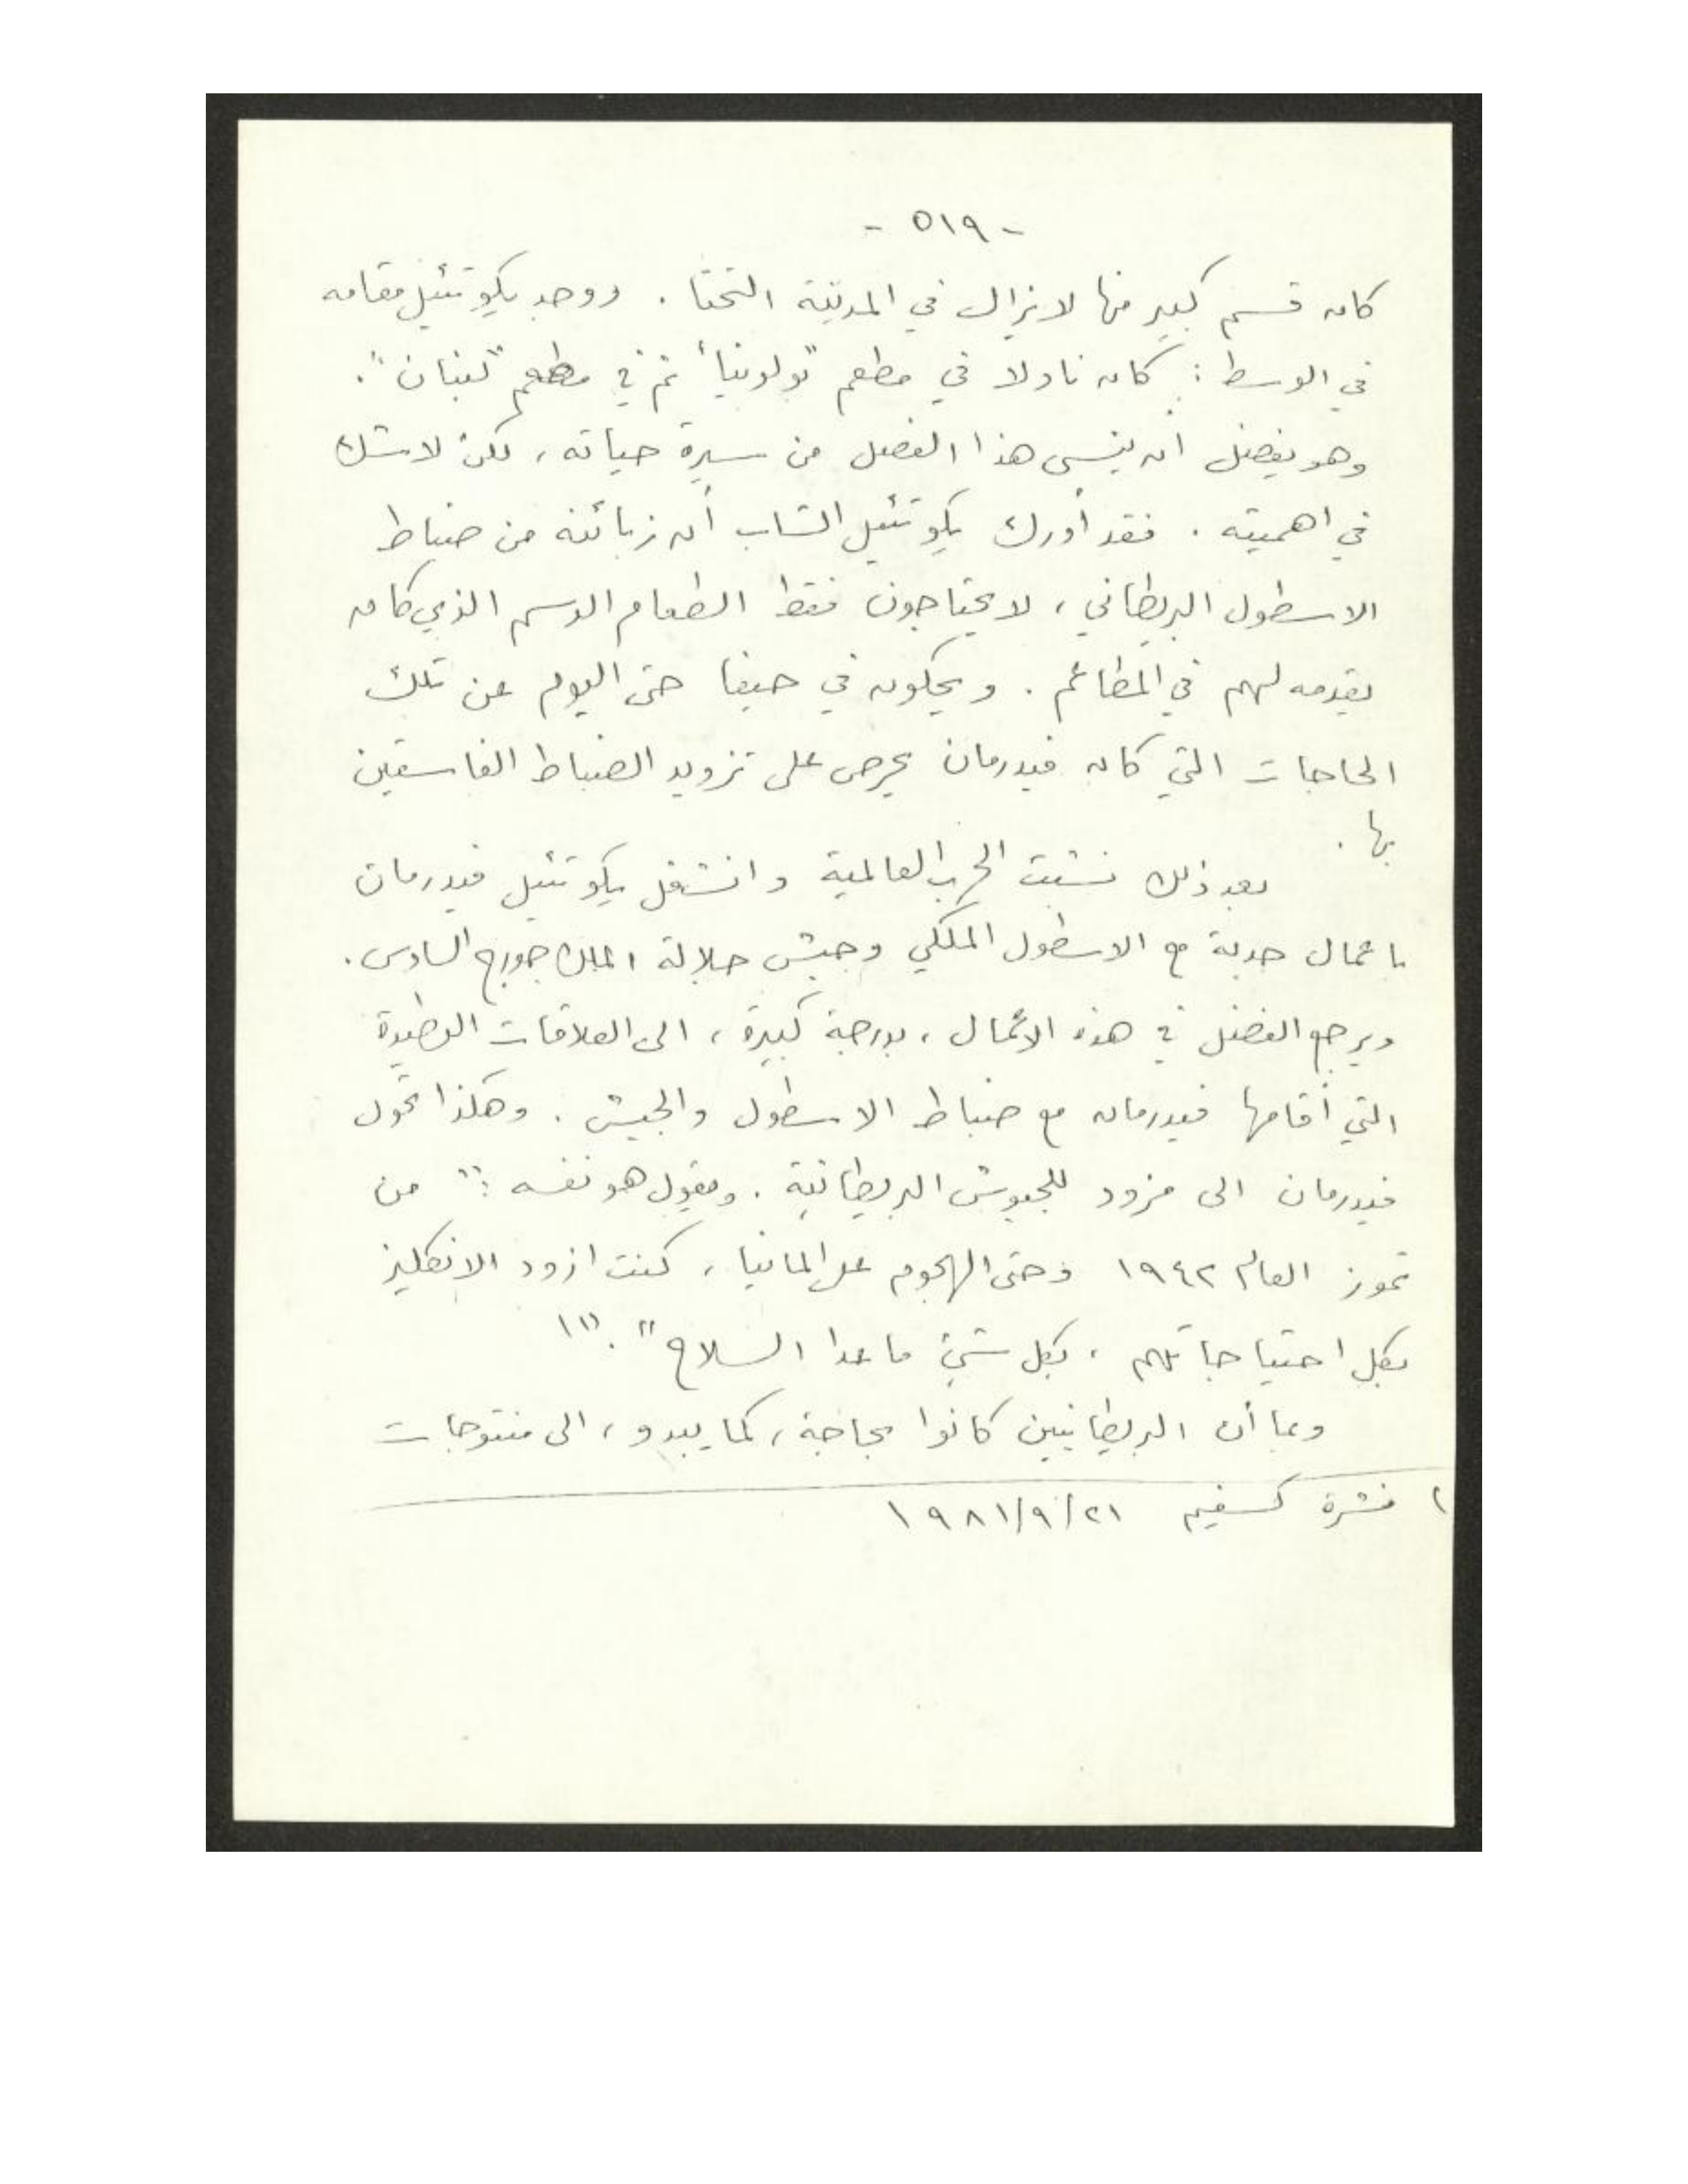 - ٥١٩ -
كان قسم كبير منها لا يزال في المدينة التحتا . ووجد يكوتئيل مقامه
في الوسط : كان نادلا في مطعم "بولونيا" ثم في مطعم "لبنان" .
وهو يفضل ان ينسى هذا الفصل من سيرة حياته ، لكن لا شك
في اهميته . فقد أدرك يكوتئيل الشاب أن زبائنه من ضباط
الاسطول البريطاني ، لا يحتاجون فقط الطعام الدسم الذي كان
يقدمه لهم في المطاعم . ويحكون في حيفا حتى اليوم عن تلك
الحاجات التي كان فيدرمان يحرص على تزويد الضباط الفاسقين
بها .
بعد ذلك نشبت الحرب العالمية وانشغل يكوتئيل فيدرمان
باعمال جدية مع الاسطول الملكي وجيش جلالة الملك جورج السادس .
ويرجع الفضل في هذه الأعمال ، بدرجة كبيرة ، الى العلاقات الوطيدة
التي أقامها فيدرمان مع ضباط الاسطول والجيش . وهكذا تحول
فيدرمان الى مزود للجيوش البريطانية . ويقول هو نفسه : " من
تموز العام ١٩٤٢ وحتى الهجوم على المانيا ، كنت ازود الانكليز
بكل احتياجاتهم ، بكل شيئ ما عدا السلاح " . "١
وبما أن البريطانيين كانوا بحاجة ، كما يبدو ، الى منتوجات
١ نشرة كسفيم ١٩٨١/٩/٢١